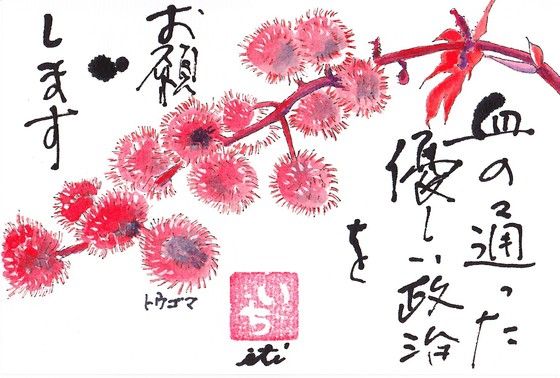 血の通った
優しい政治
を
お願
します
トウゴマ
いち
iti